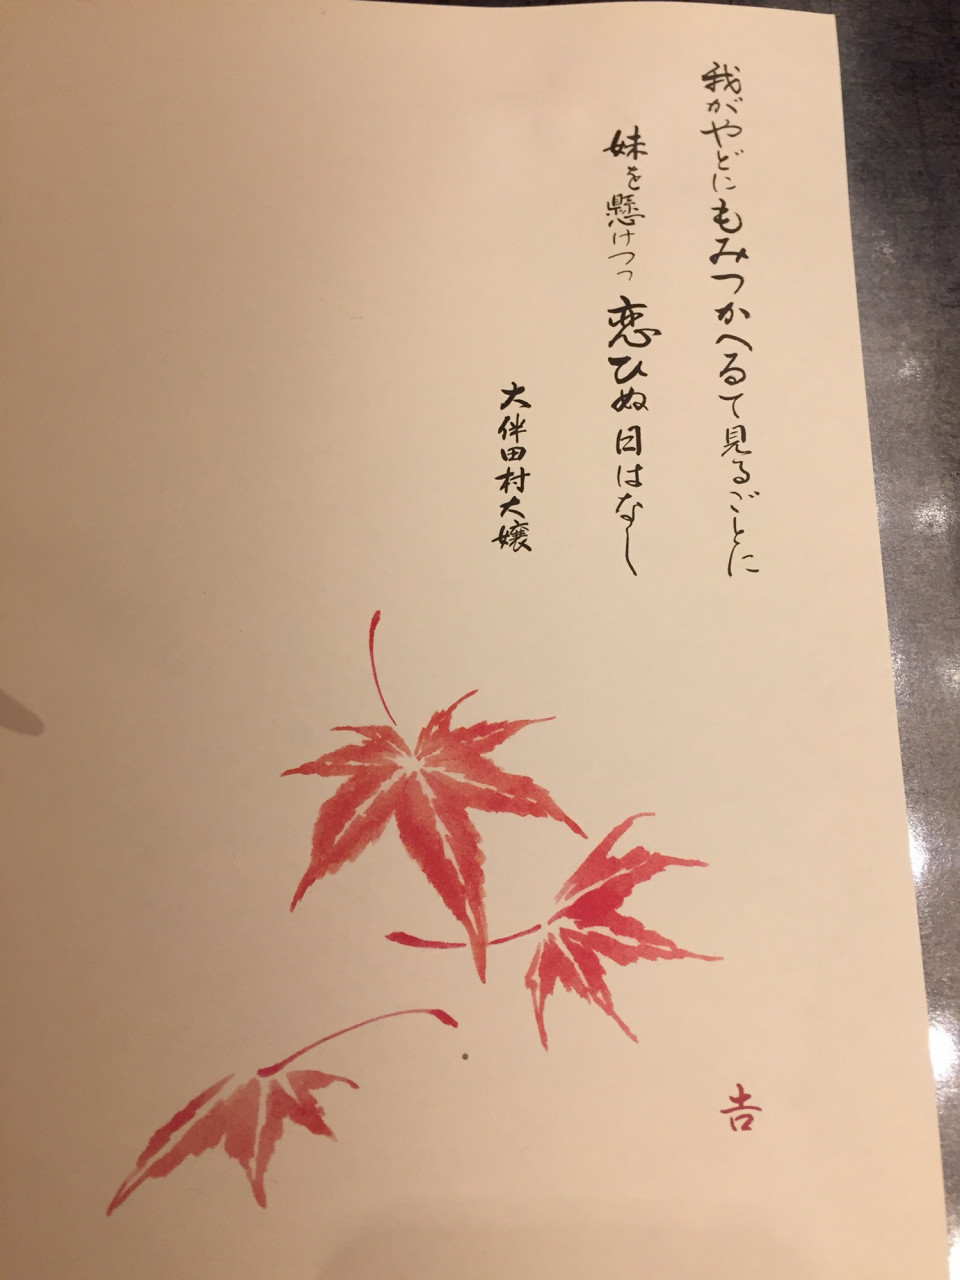 我がやどにもみつかへるて見るごとに
妹を懸けつつ恋ひぬ日はなし
大伴田村大嬢
吉